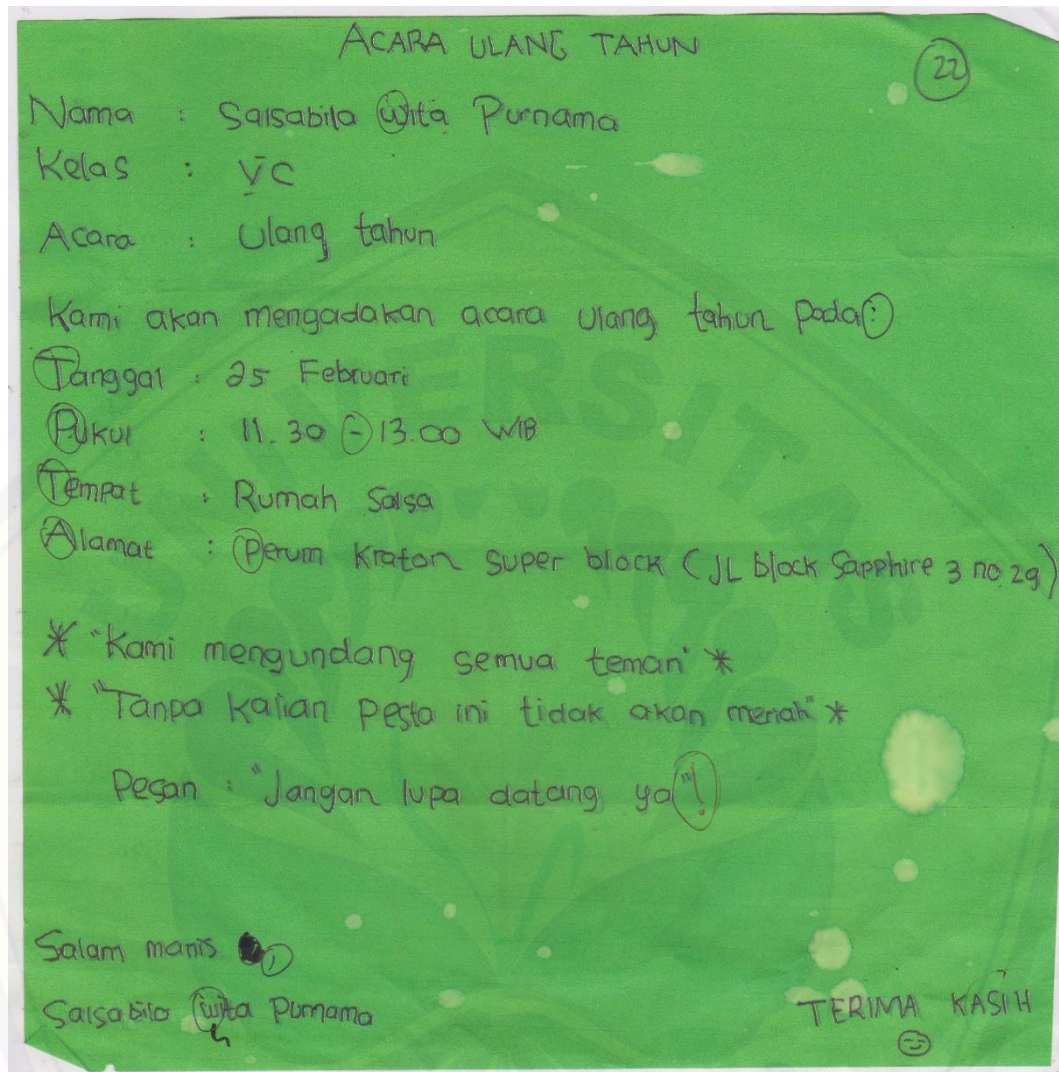 ACARA ULANG TAHUN
22
Nama : Salsabila Wita Purnama
Kelas : VC
Acara : Ulang tahun
Kami akan mengadakan acara ulang tahun pada :
Tanggal : 25 Februari
Pukul : 11.30 - 13.00 WIB
Tempat : Rumah Salsa
Alamat : Perum Kraton super block (JL block Sapphire 3 no 29)
* "Kami mengundang semua teman" *
* "Tanpa kalian pesta ini tidak akan meriah" *
Pesan : "Jangan lupa datang ya"!
Salam manis ,
Salsabila wita Purnama
TERIMA KASIH
UNIVERSITAS